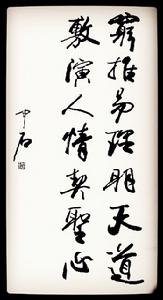 窮推易理明天道
敷演人情契聖心
中石